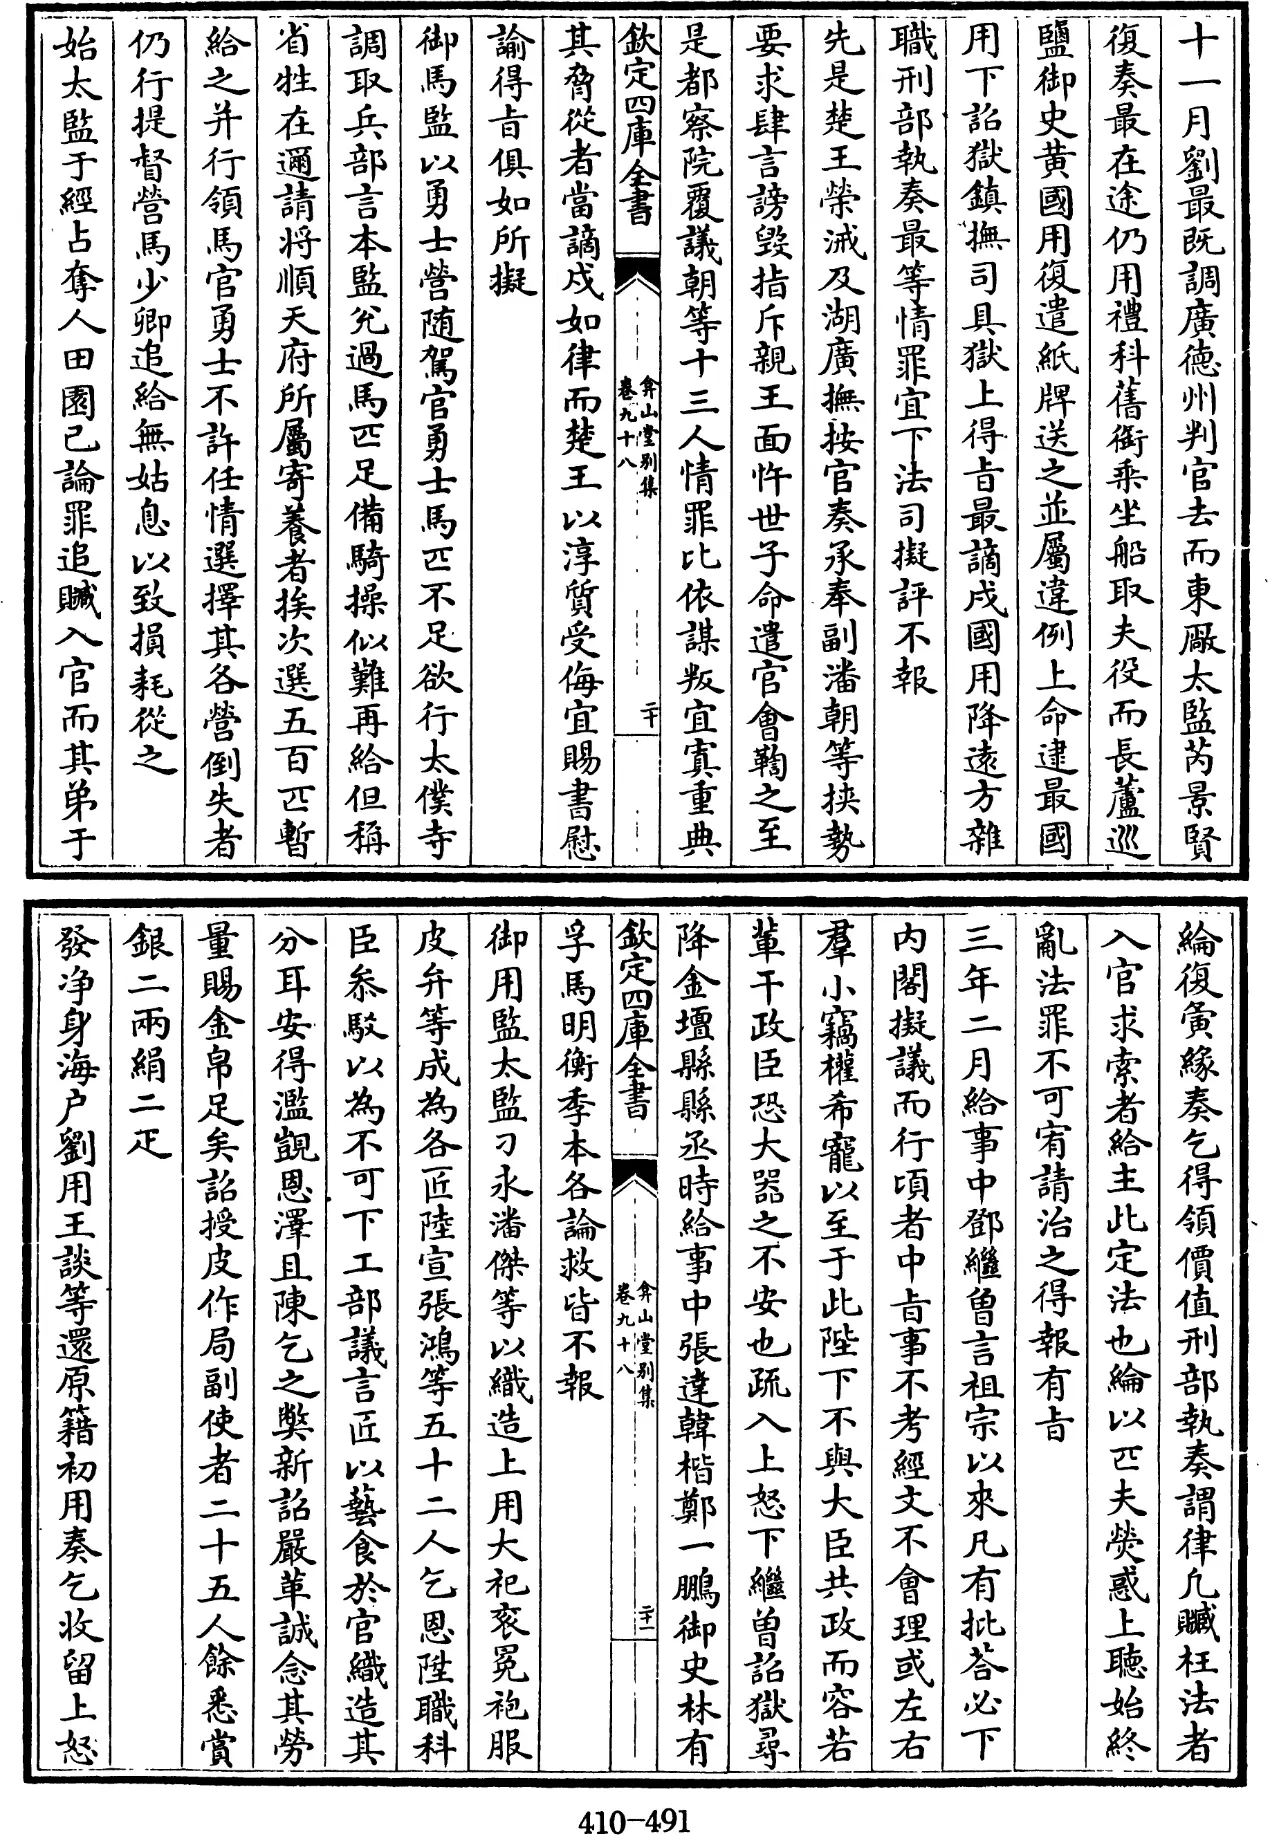 十一月劉最既調廣德州判官去而東厰太監芮景賢
復奏最在途仍用禮科舊銜乘坐船取夫役而長蘆巡
鹽御史黄國用復遣紙牌送之並屬違例上命逮最國
用下詔獄鎮撫司具獄上得旨最謫戍國用降遠方雜
職刑部執奏最等情罪宜下法司擬評不報
先是楚王榮㳦及湖廣撫按官奏承奉副潘朝等挾勢
要求肆言謗毁指斥親王面忤世子命遣官會鞫之至
是都察院覆議朝等十三人情罪比依謀叛宜寘重典
欽定四庫全書
弇山堂别集
卷九十八
二十
其脅從者當謫戍如律而楚王以淳質受侮宜賜書慰
諭得旨俱如所擬
御馬監以勇士營随駕官勇士馬匹不足欲行太僕寺
調取兵部言本監兊過馬匹足備騎操似難再給但稱
省牲在邇請将順天府所屬寄養者挨次選五百匹暫
給之并行領馬官勇士不許任情選擇其各營倒失者
仍行提督營馬少卿追給無姑息以致損耗從之
始太監于經占奪人田園已論罪追贓入官而其弟于
綸復夤緣奏乞得領價值刑部執奏謂律凡贓枉法者
入官求索者給主此定法也綸以匹夫熒惑上聽始終
亂法罪不可宥請治之得報有旨
三年二月給事中鄧繼曽言祖宗以來凡有批答必下
内閣擬議而行頃者中旨事不考經文不會理或左右
羣小竊權希寵以至于此陛下不與大臣共政而容若
輩干政臣恐大器之不安也疏入上怒下繼曽詔獄尋
降金壇縣縣丞時給事中張逵韓楷鄭一鵬御史林有
欽定四庫全書
弇山堂别集
卷九十八
二十一
孚馬明衡季本各論救皆不報
御用監太監刁永潘傑等以織造上用大祀衮冕袍服
皮弁等成為各匠陸宣張鴻等五十二人乞恩陞職科
臣叅駁以為不可下工部議言匠以藝食於官織造其
分耳安得濫覬恩澤且陳乞之弊新詔嚴革誠念其勞
量賜金帛足矣詔授皮作局副使者二十五人餘悉賞
銀二兩絹二疋
發净身海户劉用王談等還原籍初用奏乞收留上怒
410-491